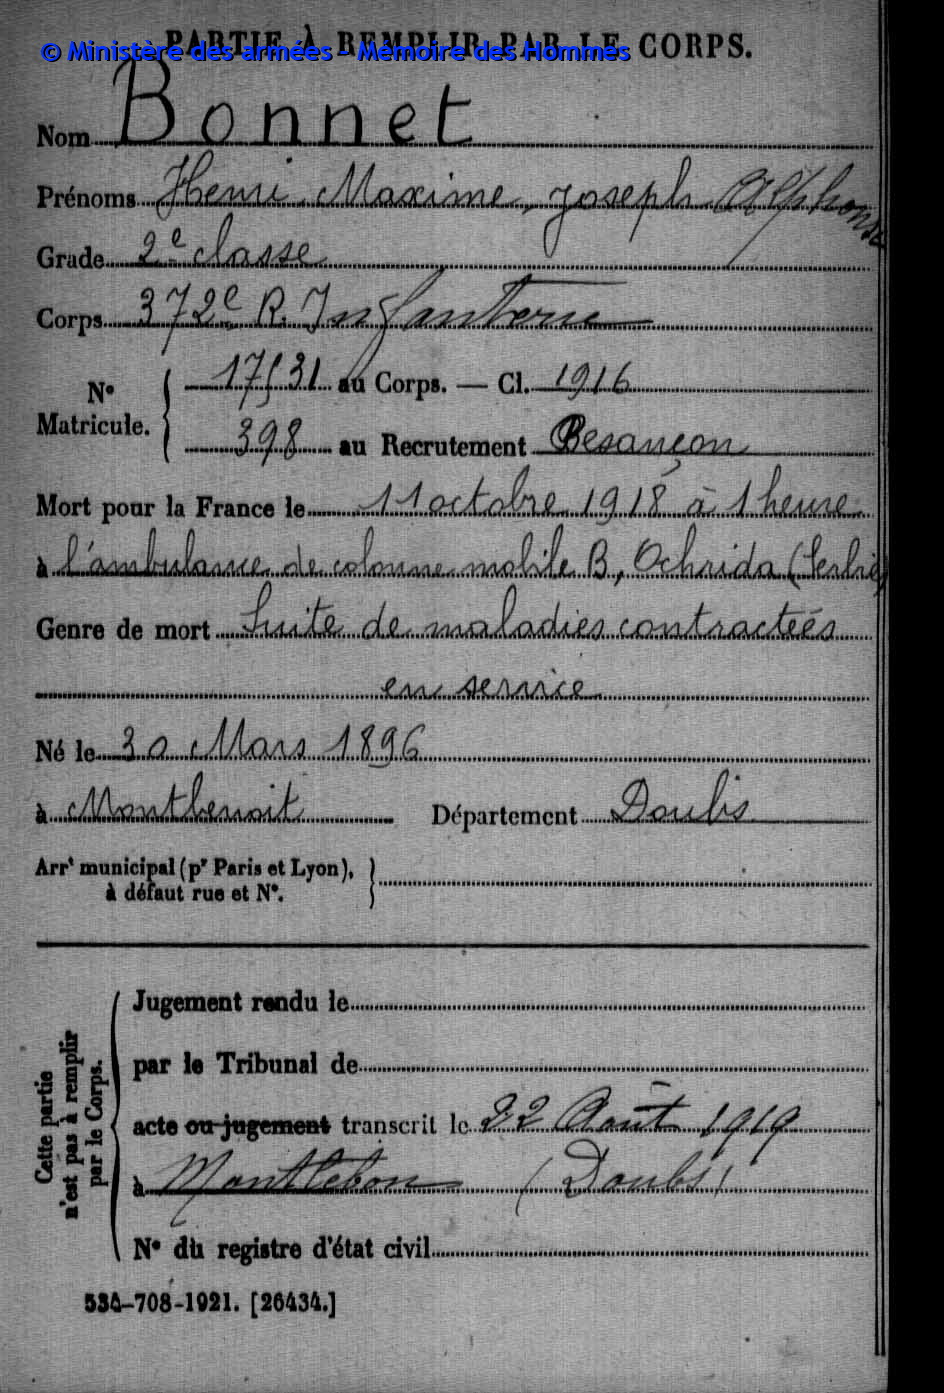 PARTIE À REMPLIR PAR LE CORPS.
© Ministère des armées - Mémoire des Hommes
Nom Bonnet
Prénoms Henri Maxime Joseph Alphonse
Grade 2e classe
Corps 372e R. Infanterie
N° Matricule. 17531 au Corps. — Cl. 1916
398 au Recrutement Besançon
Mort pour la France le 11 octobre 1918 à 1 heure
à l'ambulance de colonne mobile B, Ochrida (Serbie)
Genre de mort Suite de maladies contractées
en service
Né le 30 Mars 1896
à Montbenoit Département Doubs
Arrt municipal (pr Paris et Lyon),
à défaut rue et N°.
Cette partie n'est pas à remplir par le Corps.
Jugement rendu le
par le Tribunal de
acte ou jugement transcrit le 22 Août 1919
à Montlebon (Doubs)
N° du registre d'état civil
534-708-1921. [26434.]